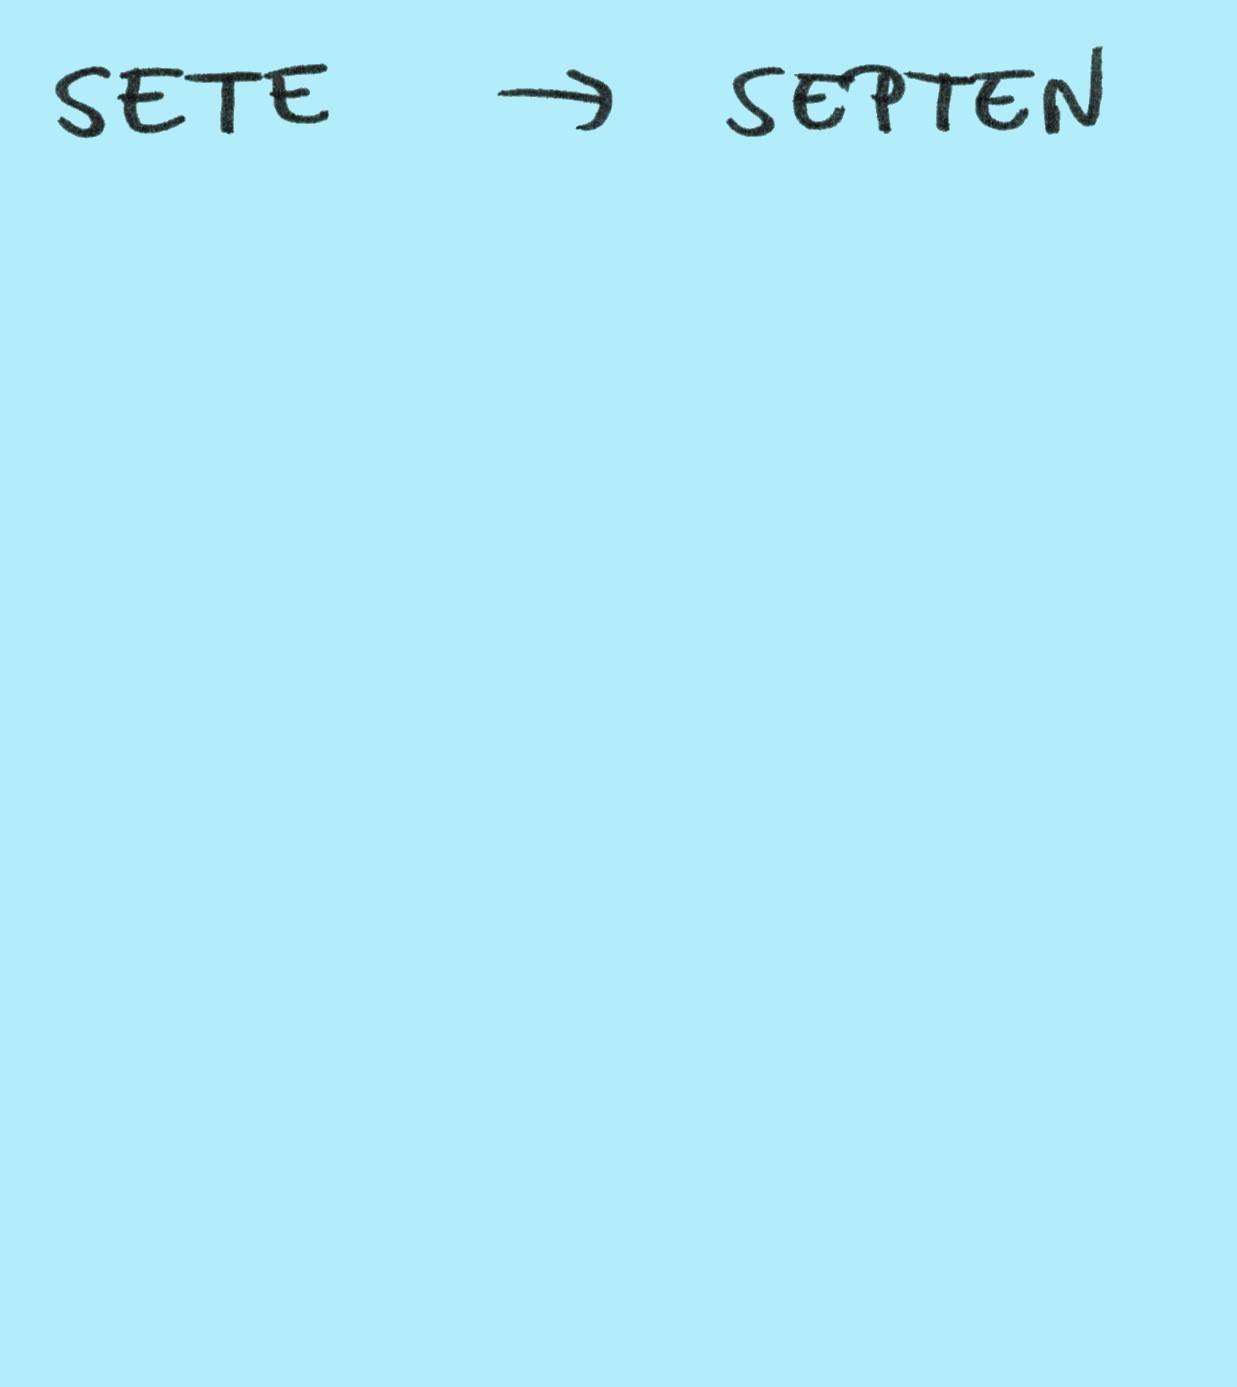 SETE → SEPTEN